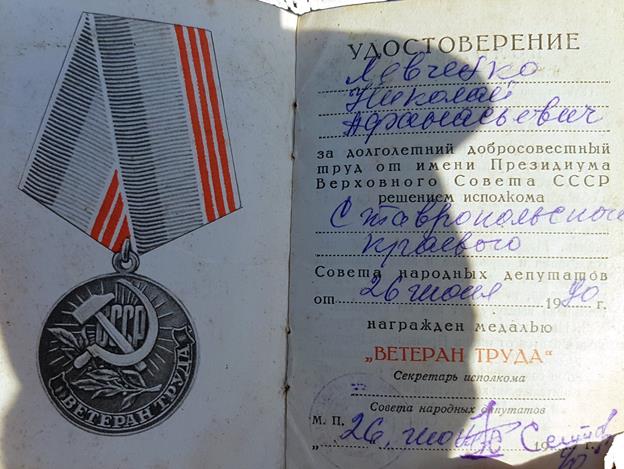 СССР
ВЕТЕРАН ТРУДА
УДОСТОВЕРЕНИЕ
Левченко
Николай
Афанасьевич
за долголетний добросовестный
труд от имени Президиума
Верховного Совета СССР
решением исполкома
Ставропольского
краевого
Совета народных депутатов
от 26 июня 1990 г.
награжден медалью
„ВЕТЕРАН ТРУДА“
Секретарь исполкома
Совета народных депутатов
М. П.
„ 26. 19 г.